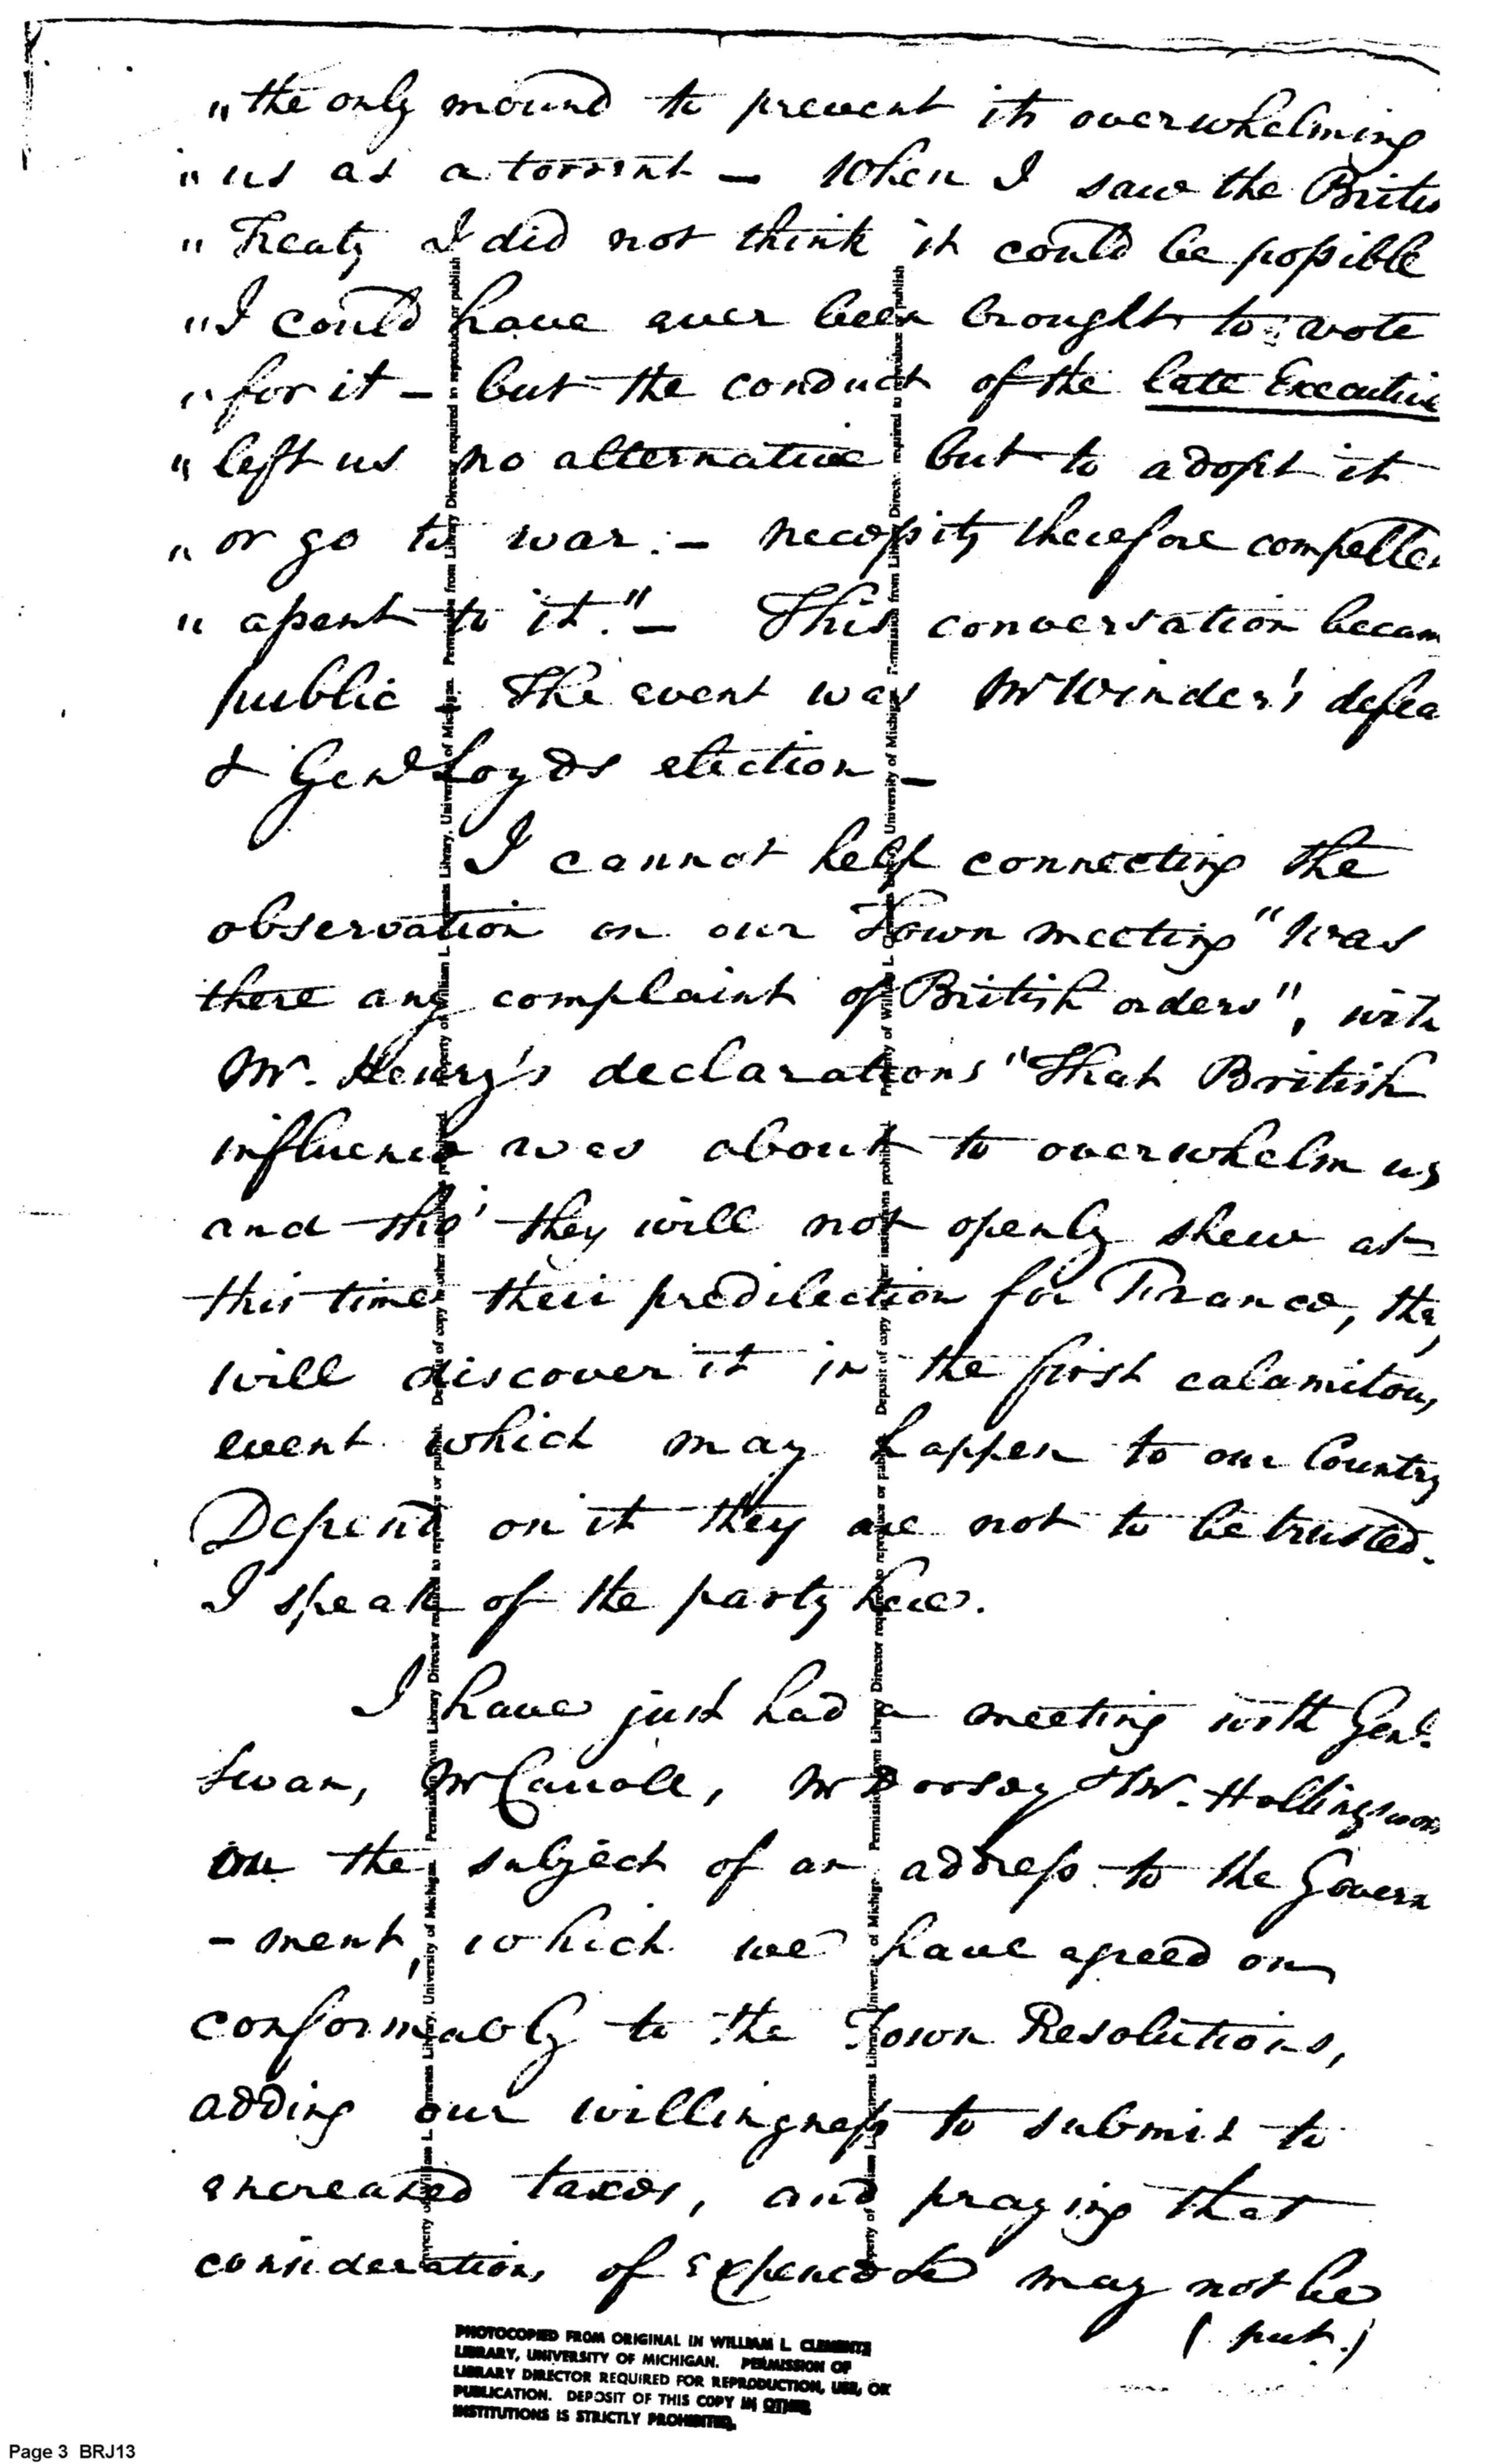 "the only mound to prevent its overwhelming
"us as a torrent – When I saw the Britis
"Treaty I did not think it could be possible
"I could have ever been brought to vote
"for it – but the conduct of the late Executive
"left us no alternative but to adopt it
"or go to war. – necessity therefore compelled
"assent to it." – This conversation becam
public – The event was Mr Winder's defea
& Genl Loyds election –
I cannot help connecting the
observation on our Town meeting "Was
there any complaint of British orders", with
Mr. Henry's declarations "That British
influence was about to overwhelm us
and tho' they will not openly shew at
this time their predilection for France, they
will discover it in the first calamitous
event which may happen to our Country
Depend on it they are not to be trusted.
I speak of the party here.
I have just had a meeting with Genl.
Swan, Mr Carroll, Mr Dorsey & W. Hollingswor
on the subject of an address to the Govern
-ment, which we have agreed on
conformably to the Town Resolutions,
adding our willingness to submit to
encreased taxes, and praying that
considerations of expence &c may not be
(put.)
Property of William L. Clements Library, University of Michigan. Permission from Library Director required to reproduce or publish. Deposit of copy in other institutions prohibited.
PHOTOCOPIED FROM ORIGINAL IN WILLIAM L. CLEMENTS
LIBRARY, UNIVERSITY OF MICHIGAN. PERMISSION OF
LIBRARY DIRECTOR REQUIRED FOR REPRODUCTION, USE, OR
PUBLICATION. DEPOSIT OF THIS COPY IN OTHER
INSTITUTIONS IS STRICTLY PROHIBITED.
Page 3 BRJ13